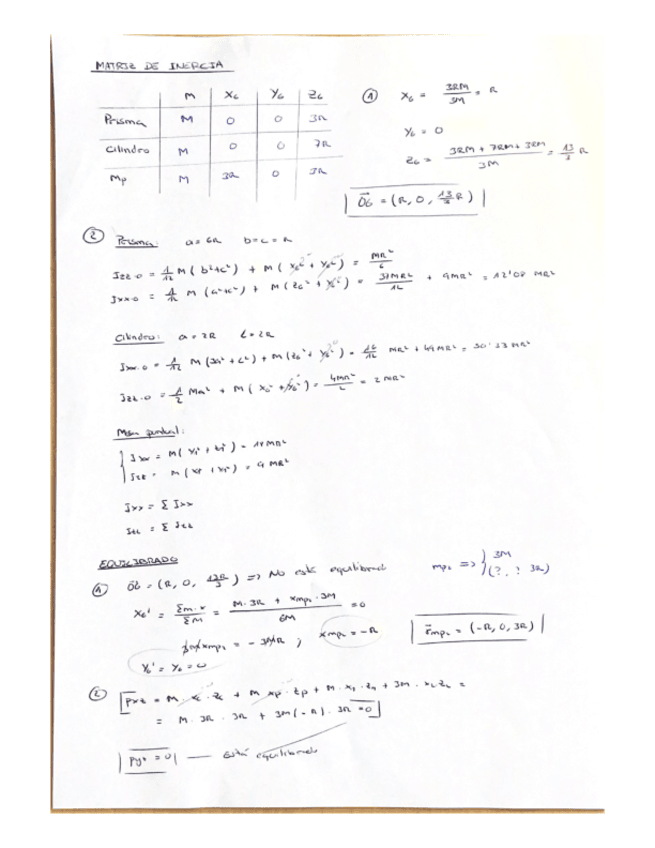 MATRIZ DE INERCIA
M X_G Y_G Z_G
Prisma M 0 0 3R
Cilindro M 0 0 7R
Mp M 3R 0 3R
① X_G = 3RM / 3M = R
Y_G = 0
Z_G = (3RM + 7RM + 3RM) / 3M = 13/3 R
OG = (R, 0, 13/3 R)
② Prisma: a = 6R b = c = R
Jzz.0 = 1/12 M (b² + c²) + M (X_G² + Y_G²) = MR²/6
Jxx.0 = 1/12 M (a² + c²) + M (Z_G² + Y_G²) = 37MR²/12 + 9MR² = 12'08 MR²
Cilindro: a = 2R L = 2R
Jxx.0 = 1/12 M (3a² + L²) + M (Z_G² + Y_G²) = 16/12 MR² + 49MR² = 50'33 MR²
Jzz.0 = 1/2 Ma² + M (X_G² + Y_G²) = 4MR²/2 = 2MR²
Masa puntual:
Jxx =
Jzz = = 9MR²
Jxx = Σ Jxx
Jzz = Σ Jzz
EQUILIBRADO
① OG = (R, 0, 13R/3) => No está equilibrado mp₂ => 3M
(?, ?, 3R)
X_G' = Σm·x / Σm = (M·3R + xmp₂·3M) / 6M = 0
xmp₂ = -3MR ; xmp₂ = -R
r mp₂ = (-R, 0, 3R)
Y_G' = Y_G = 0
②
= M·3R·3R + 3M(-R)·3R = 0
= 0 — está equilibrado